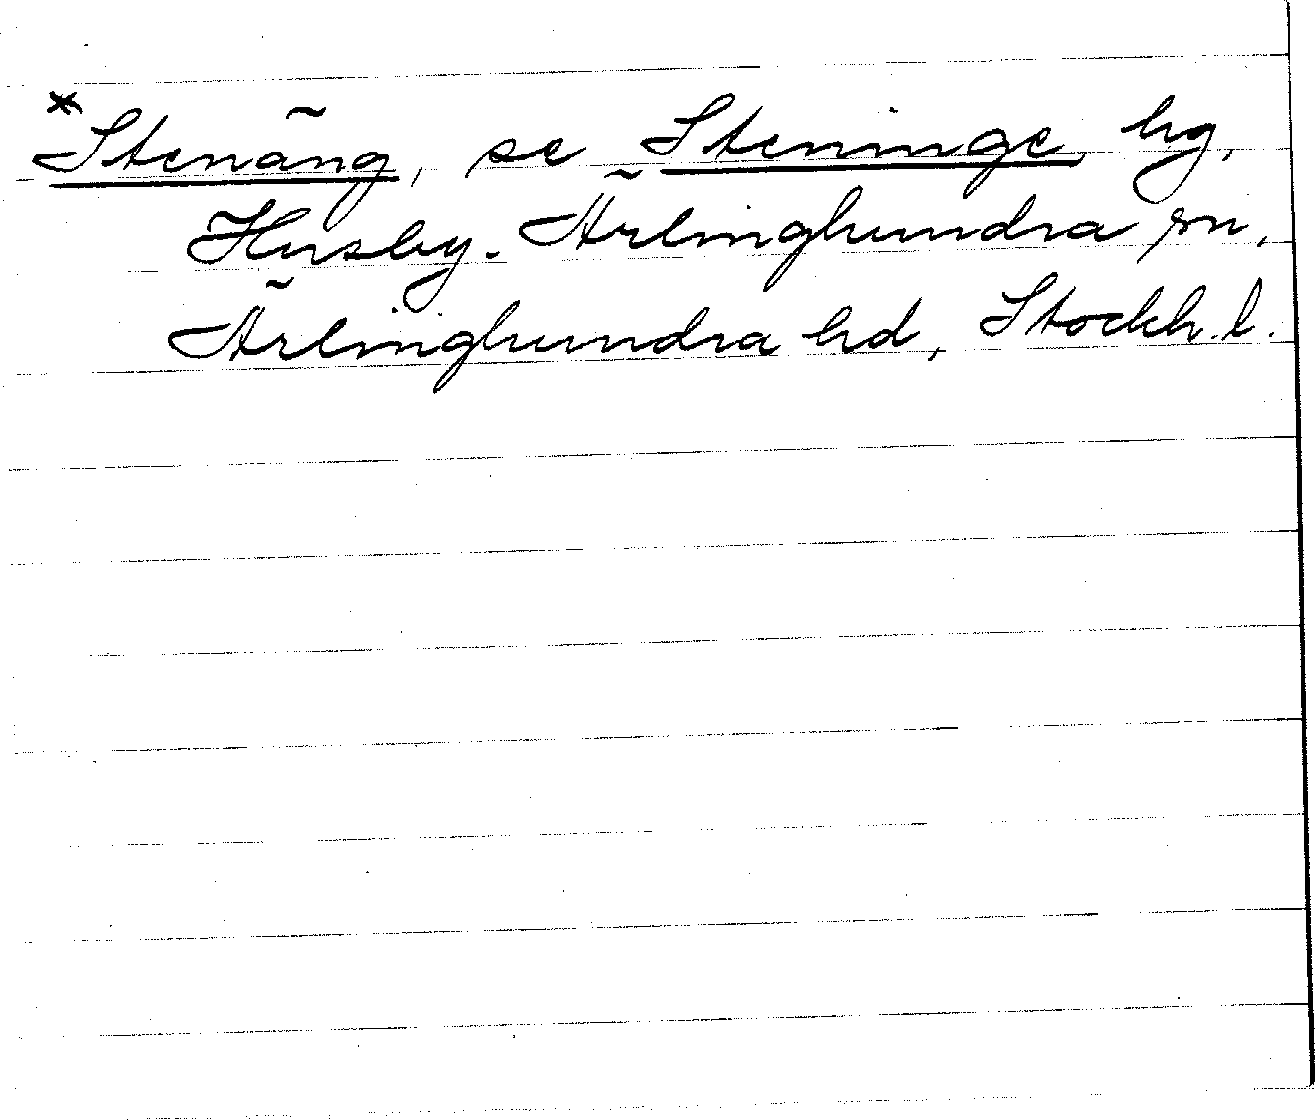 *Stenäng, se Steninge hg,
Husby-Ärlinghundra sn,
Ärlinghundra hd, Stockh. l.